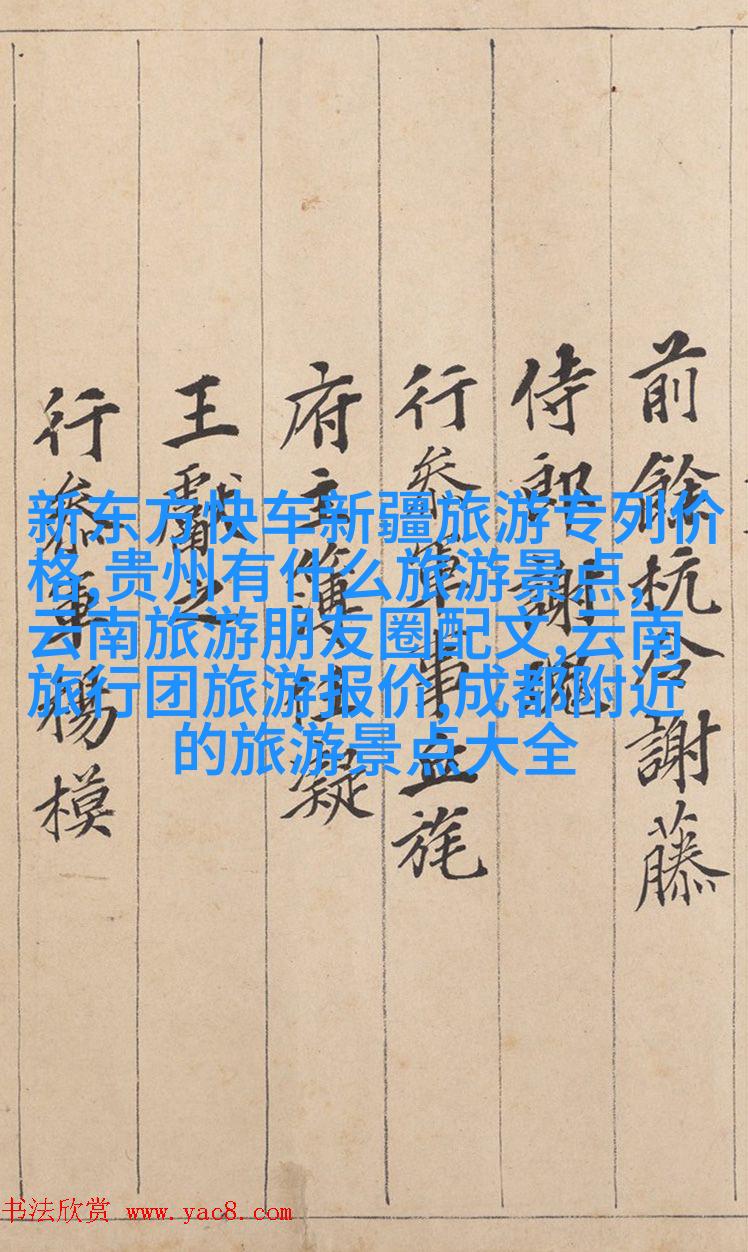 前餘杭令謝藤
侍郎謝瑰
行叅軍事丘旄
府主簿
王獻之
行叅軍楊模
新东方快车新疆旅游专列价
格,贵州有什么旅游景点,
云南旅游朋友圈配文,云南
旅行团旅游报价,成都附近
的旅游景点大全
书法欣赏 www.yac8.com